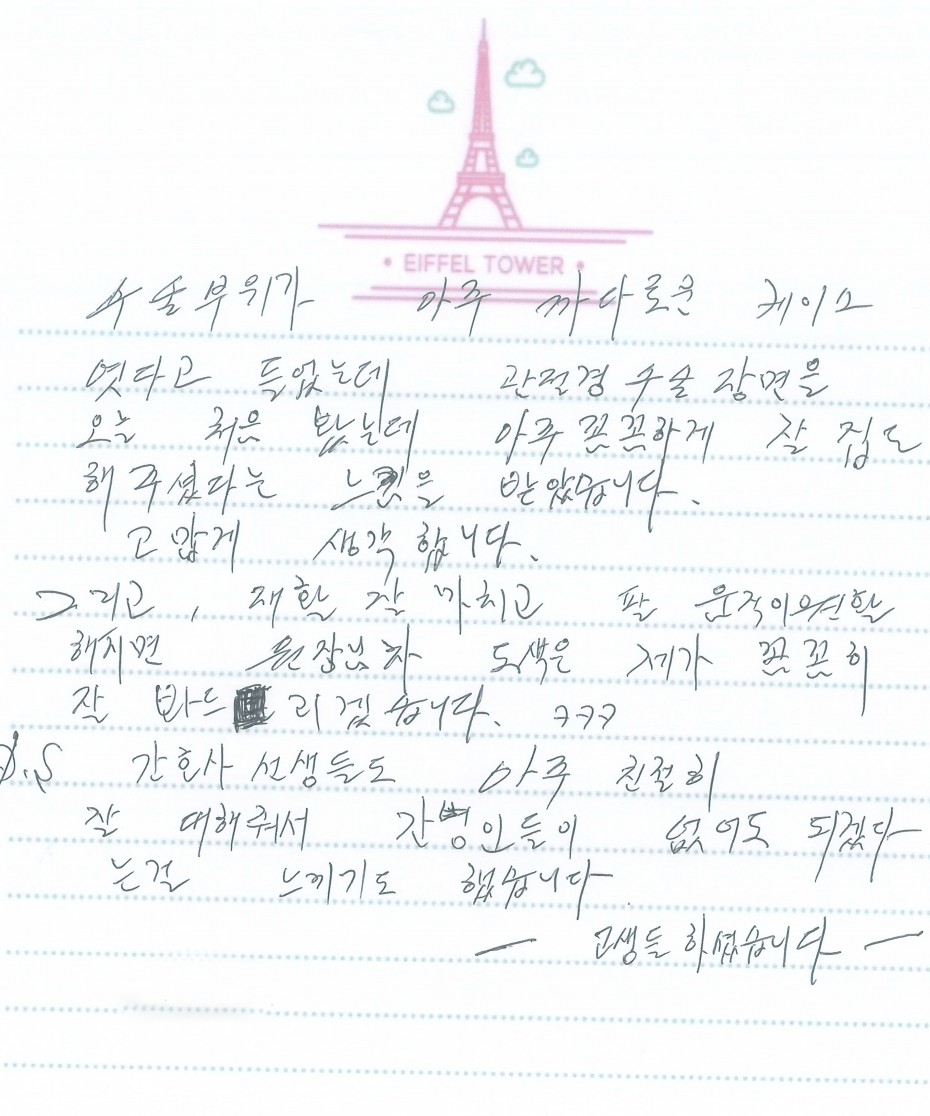 • EIFFEL TOWER •
수술부위가 아주 까다로운 케이스
엿다고 들었는데 관절경 수술 장면을
오늘 처음 봤는데 아주 꼼꼼하게 잘 집도
해 주셨다는 느낌을 받았습니다.
고맙게 생각 합니다.
그리고, 재활 잘 마치고 팔 움직이 원활
해지면 원장님 차 도색은 제가 꼼꼼히
잘 바드리겠습니다. ㅋㅋㅋ
P.S 간호사 선생들도 아주 친절히
잘 대해줘서 간병인들이 없어도 되겠다
는걸 느끼기도 했습니다.
— 고생들 하셨습니다 —